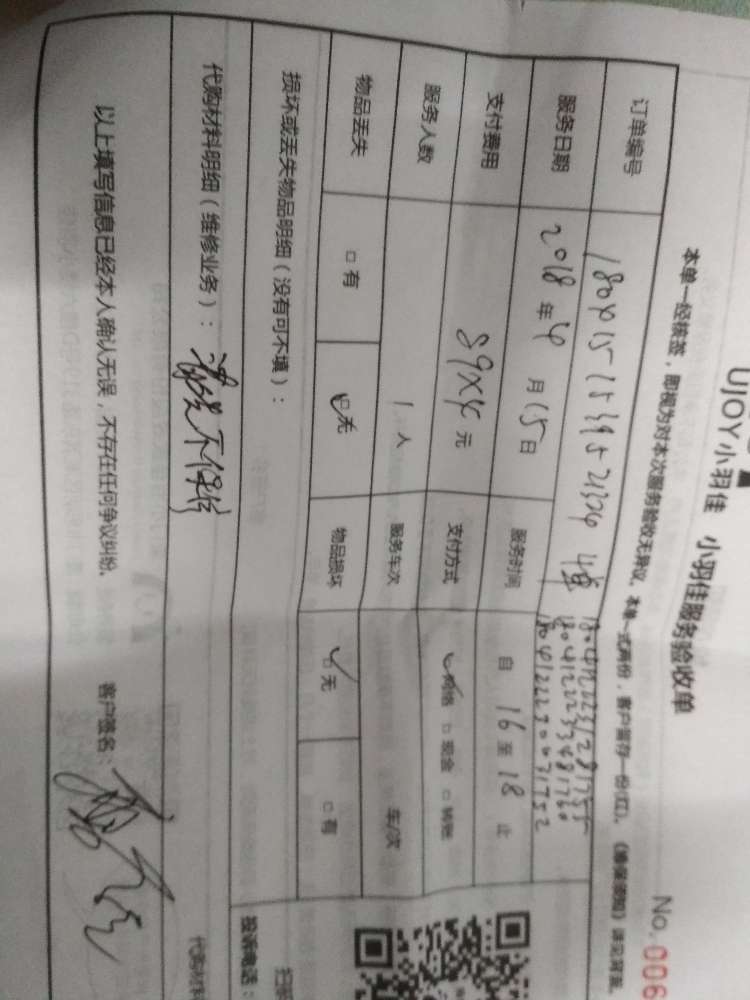 UJOY小羽佳 小羽佳服务验收单
No.006
本单一经核签，即视为对本次服务验收无异议。本单一式两份，客户留存一份(红)。
订单编号
服务日期 2018年4月15日 服务时间 自 16 至 18 止
支付费用 89X4 元 支付方式 网络 □ 现金 □ 转账
服务人数 1 人 服务车次 车/次
物品丢失 □ 有 □ 无 物品损坏 □ 无 □ 有
损坏或丢失物品明细（没有可不填）：
代购材料明细（维修业务）：
以上填写信息已经本人确认无误，不存在任何争议纠纷。 客户签名：
投诉电话：
代购材料